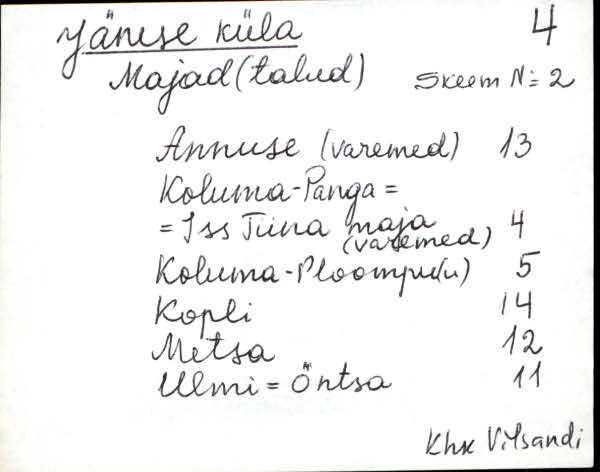 Jänese küla 4
Majad (talud) Skeem N= 2
Annuse (varemed) 13
Koluma-Panga =
= Iss Tiina maja 4
(varemed)
Koluma-Ploompu(u) 5
Kopli 14
Metsa 12
Ulmi = Öntsa 11
Khk Vilsandi